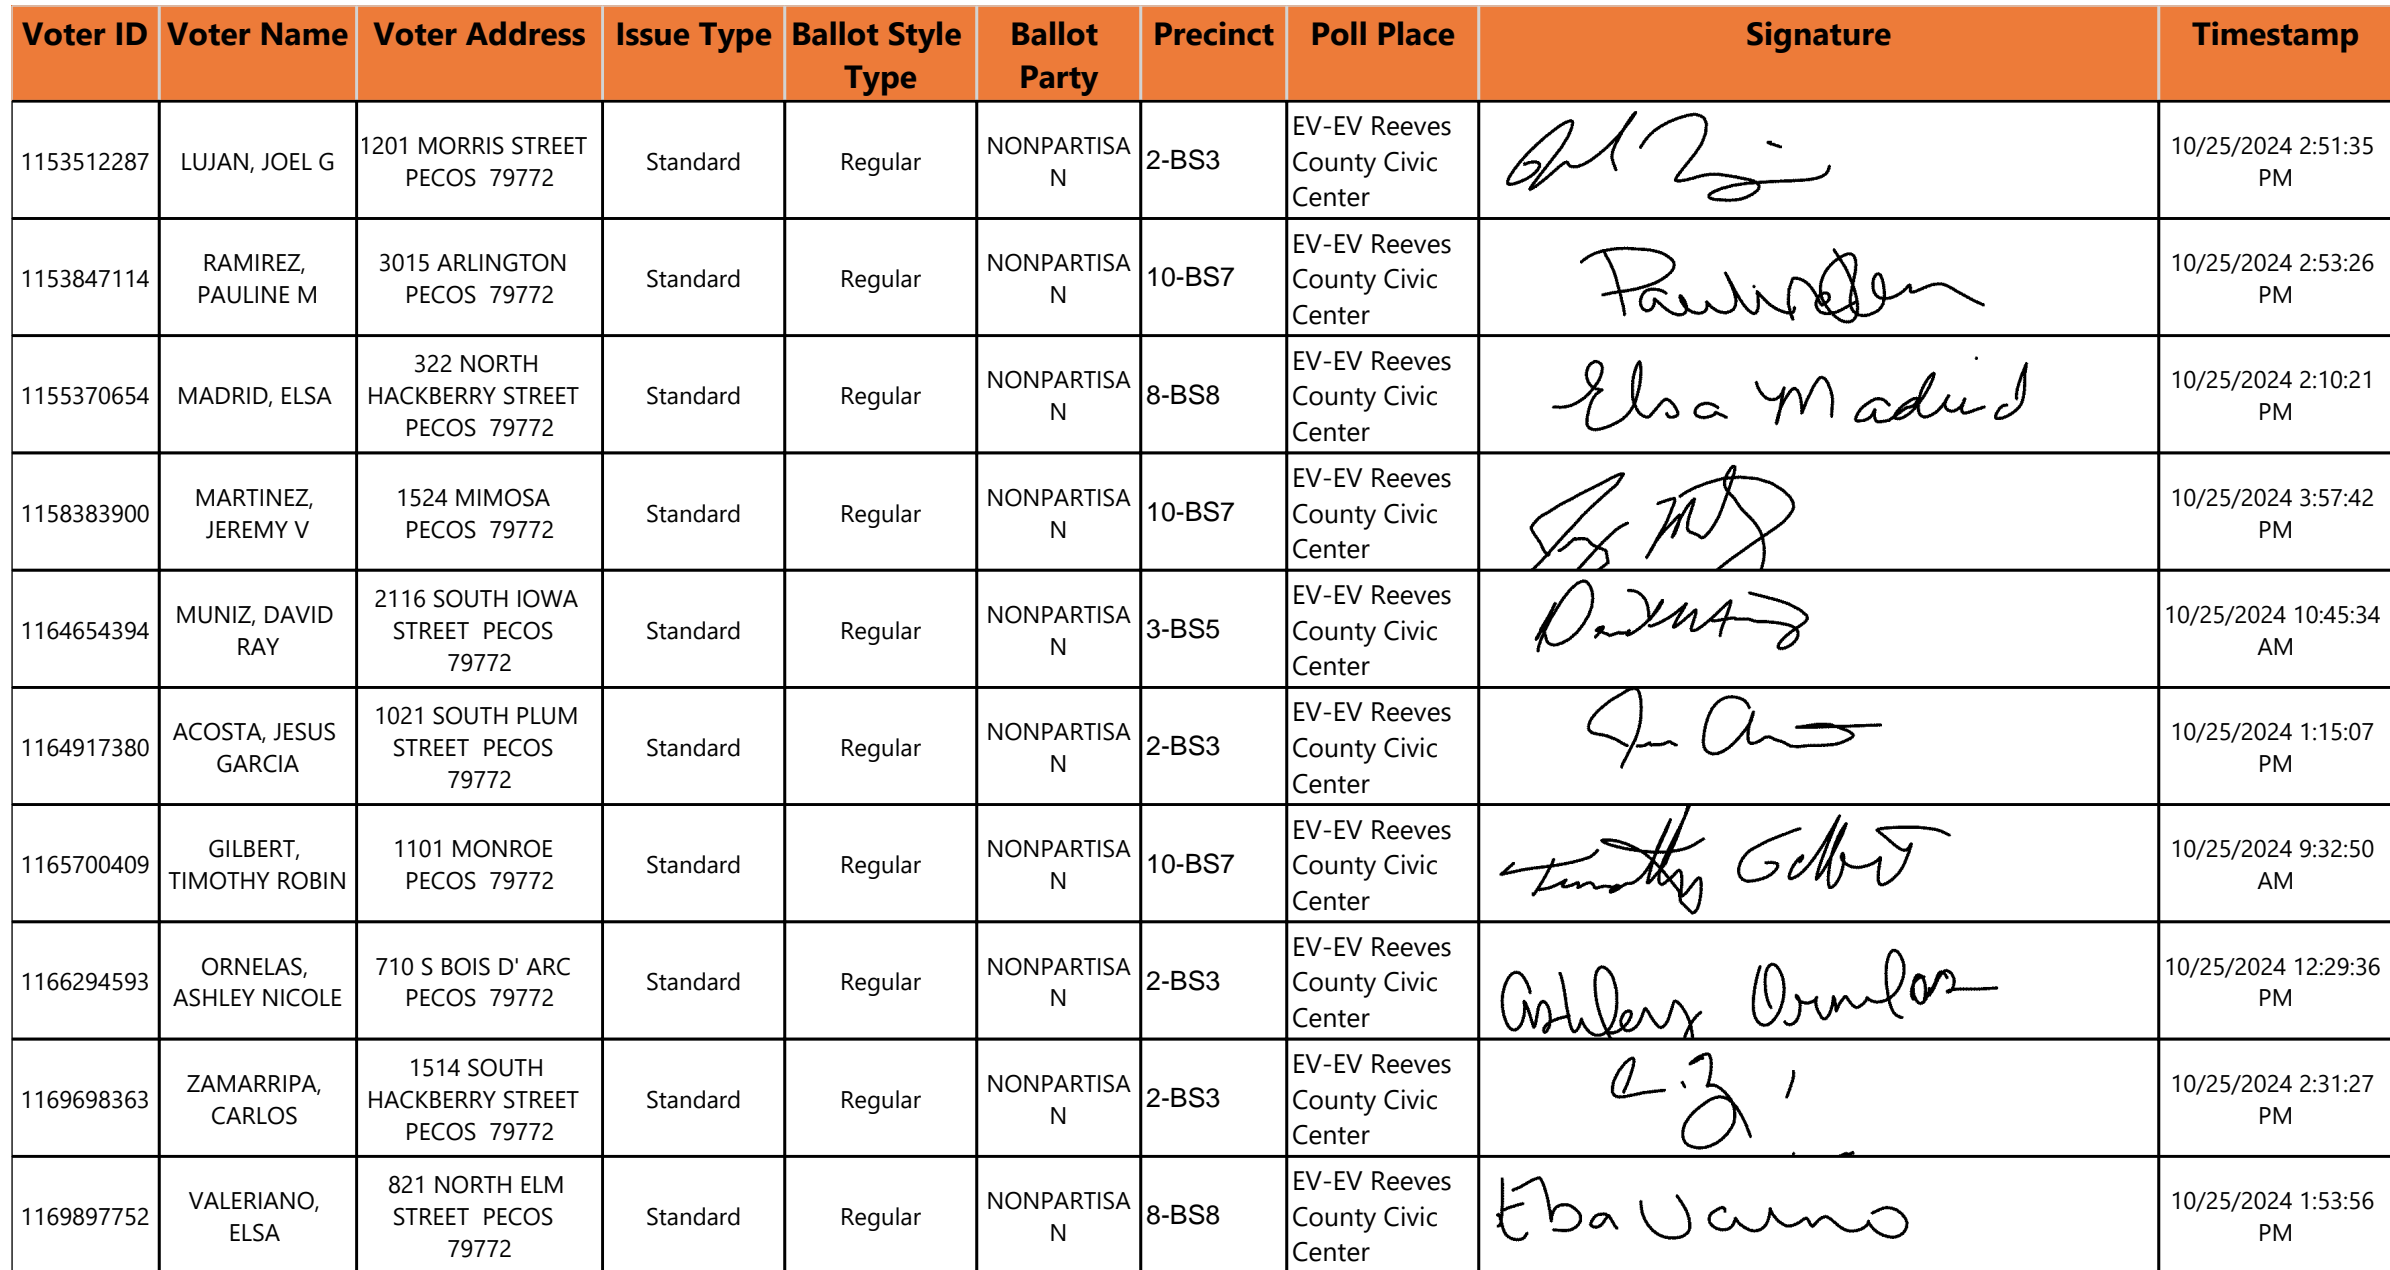 Voter ID Voter Name Voter Address Issue Type Ballot Style Type Ballot Party Precinct Poll Place Signature Timestamp
1153512287 LUJAN, JOEL G 1201 MORRIS STREET PECOS 79772 Standard Regular NONPARTISAN 2-BS3 EV-EV Reeves County Civic Center 10/25/2024 2:51:35 PM
1153847114 RAMIREZ, PAULINE M 3015 ARLINGTON PECOS 79772 Standard Regular NONPARTISAN 10-BS7 EV-EV Reeves County Civic Center 10/25/2024 2:53:26 PM
1155370654 MADRID, ELSA 322 NORTH HACKBERRY STREET PECOS 79772 Standard Regular NONPARTISAN 8-BS8 EV-EV Reeves County Civic Center Elsa Madrid 10/25/2024 2:10:21 PM
1158383900 MARTINEZ, JEREMY V 1524 MIMOSA PECOS 79772 Standard Regular NONPARTISAN 10-BS7 EV-EV Reeves County Civic Center 10/25/2024 3:57:42 PM
1164654394 MUNIZ, DAVID RAY 2116 SOUTH IOWA STREET PECOS 79772 Standard Regular NONPARTISAN 3-BS5 EV-EV Reeves County Civic Center 10/25/2024 10:45:34 AM
1164917380 ACOSTA, JESUS GARCIA 1021 SOUTH PLUM STREET PECOS 79772 Standard Regular NONPARTISAN 2-BS3 EV-EV Reeves County Civic Center 10/25/2024 1:15:07 PM
1165700409 GILBERT, TIMOTHY ROBIN 1101 MONROE PECOS 79772 Standard Regular NONPARTISAN 10-BS7 EV-EV Reeves County Civic Center Timothy Gilbert 10/25/2024 9:32:50 AM
1166294593 ORNELAS, ASHLEY NICOLE 710 S BOIS D' ARC PECOS 79772 Standard Regular NONPARTISAN 2-BS3 EV-EV Reeves County Civic Center Ashley Ornelas 10/25/2024 12:29:36 PM
1169698363 ZAMARRIPA, CARLOS 1514 SOUTH HACKBERRY STREET PECOS 79772 Standard Regular NONPARTISAN 2-BS3 EV-EV Reeves County Civic Center 10/25/2024 2:31:27 PM
1169897752 VALERIANO, ELSA 821 NORTH ELM STREET PECOS 79772 Standard Regular NONPARTISAN 8-BS8 EV-EV Reeves County Civic Center 10/25/2024 1:53:56 PM